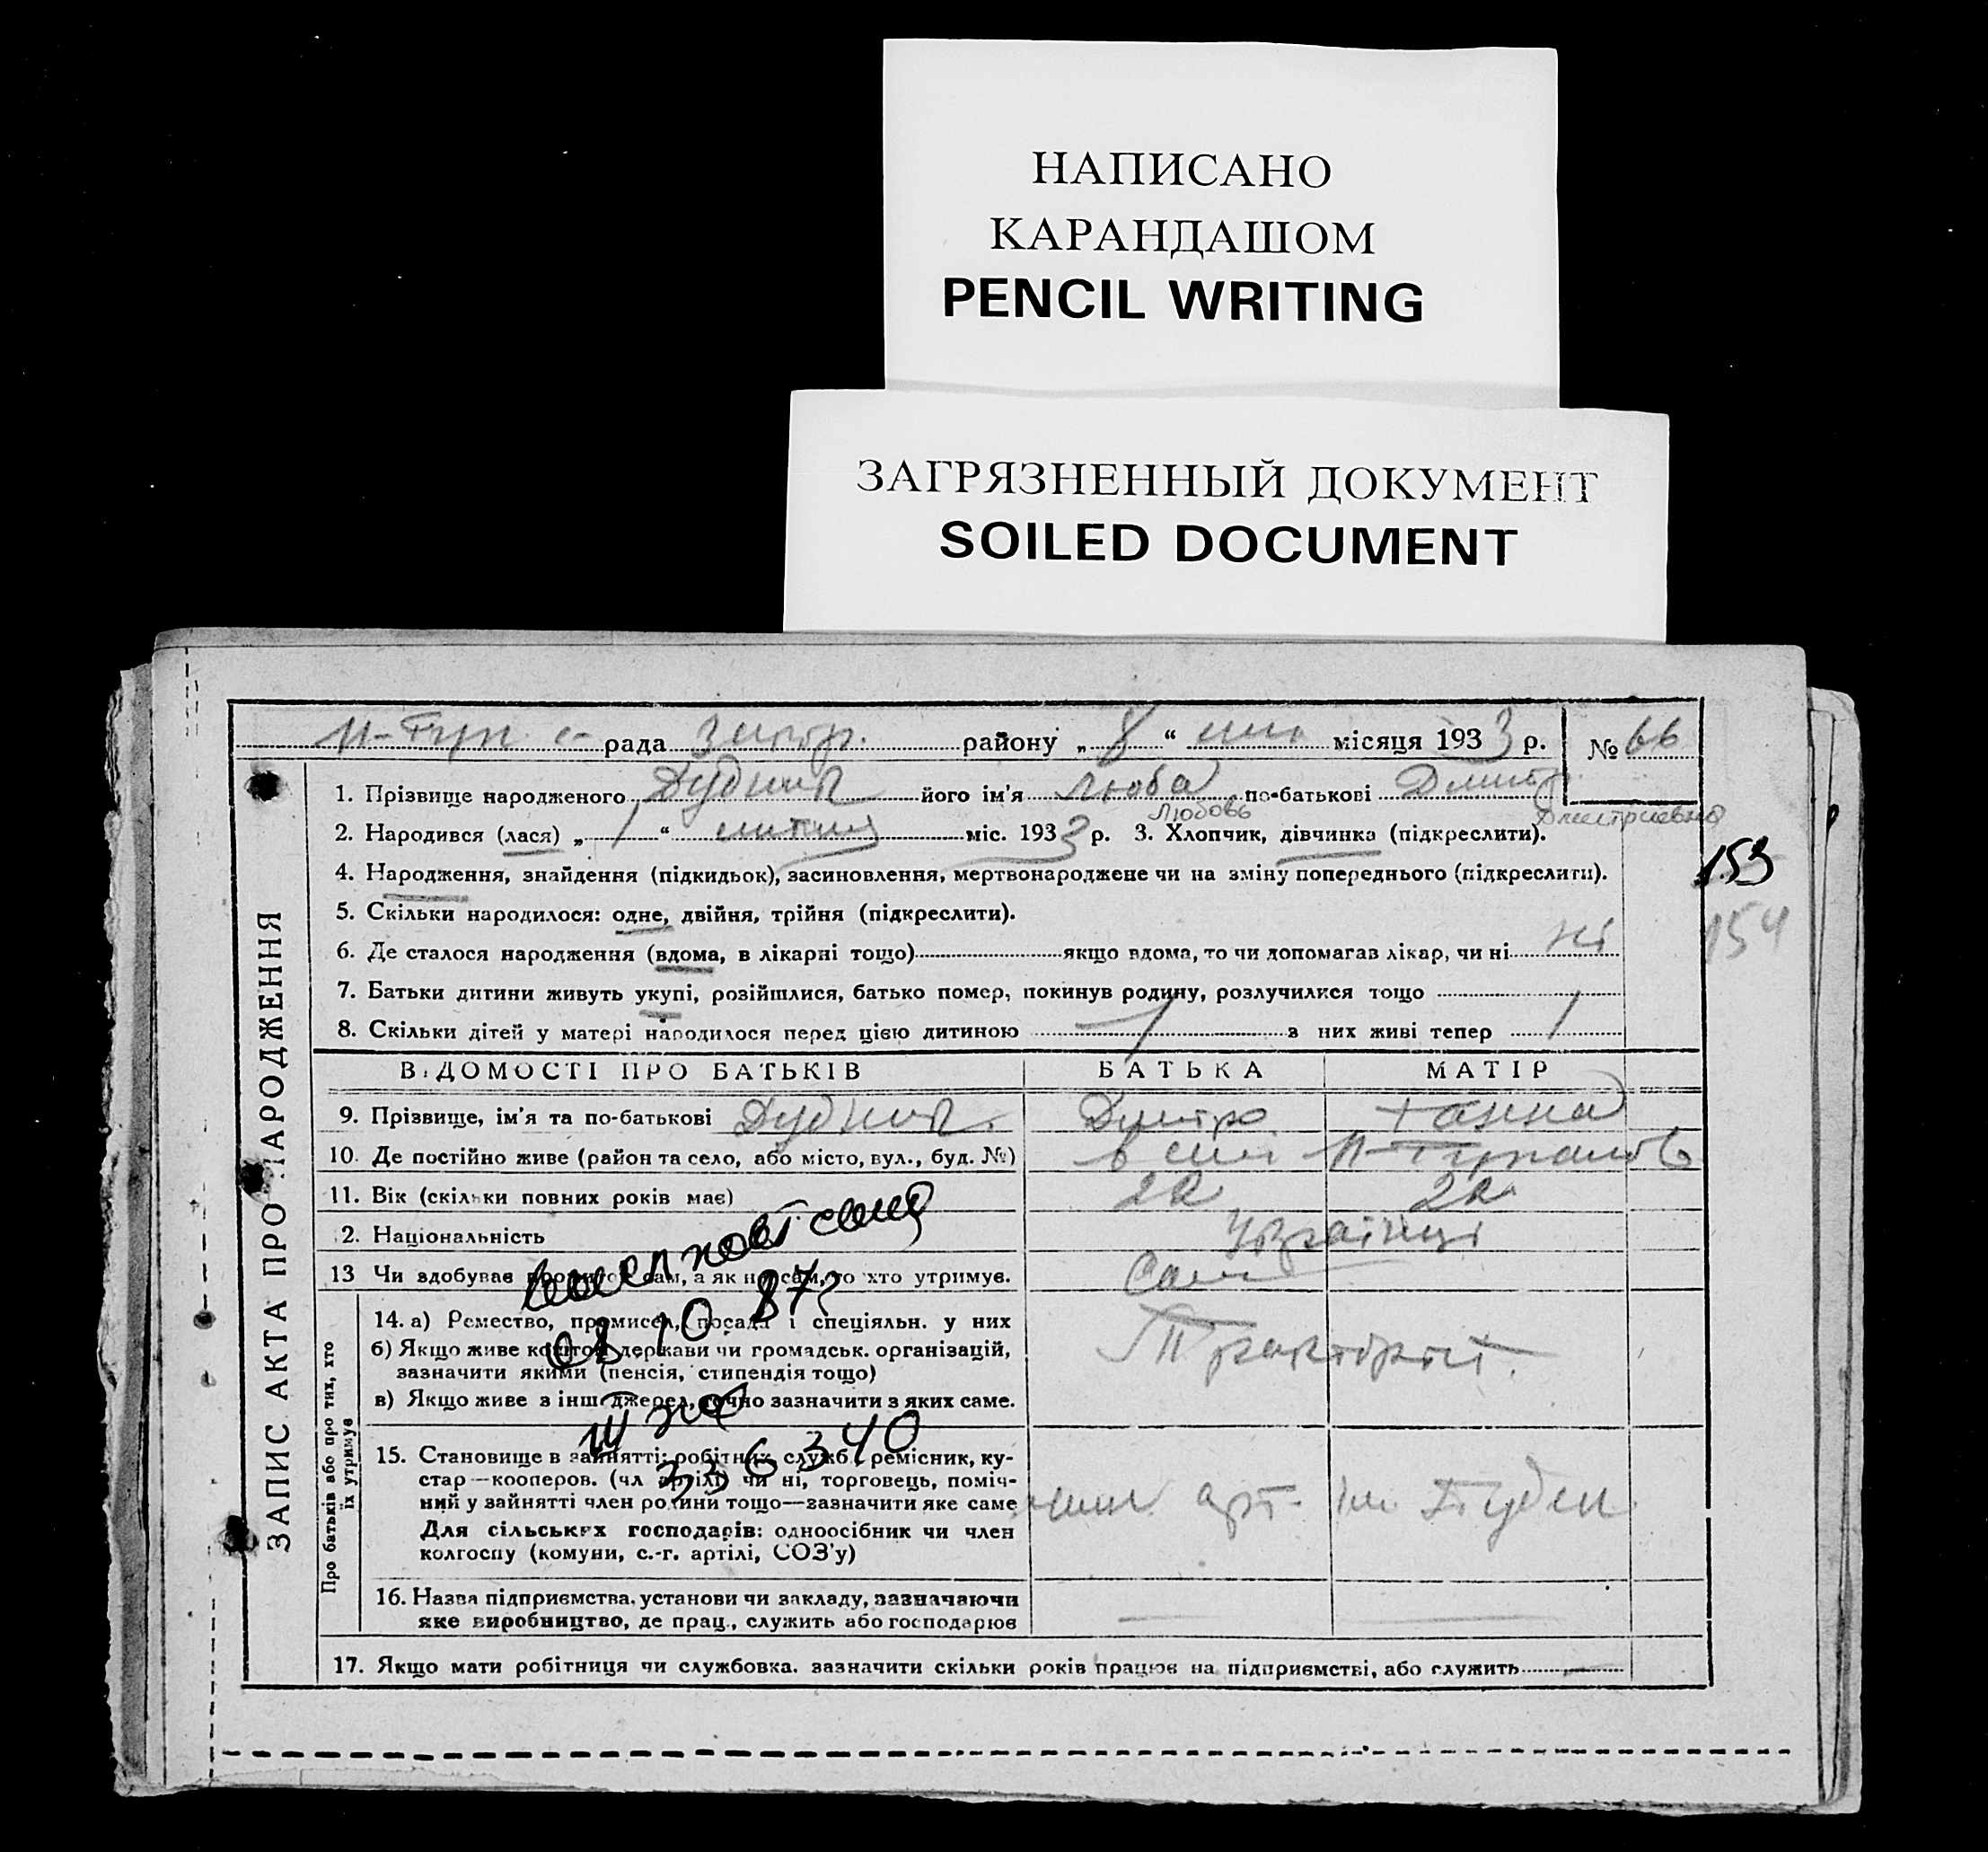 НАПИСАНО
КАРАНДАШОМ
PENCIL WRITING
ЗАГРЯЗНЕННЫЙ ДОКУМЕНТ
SOILED DOCUMENT
рада району „ 8 “ місяця 1933 р. № 66
1. Прізвище народженого його ім'я Люба по-батькові Дмитр.
Любовь Дмитриевна
2. Народився (лася) „ 1 “ міс. 1933 р. 3. Хлопчик, дівчинка (підкреслити).
153
4. Народження, знайдення (підкидьок), засиновлення, мертвонароджене чи на зміну попереднього (підкреслити).
5. Скільки народилося: одне, двійня, трійня (підкреслити).
154
6. Де сталося народження (вдома, в лікарні тощо) якщо вдома, то чи допомагав лікар, чи ні ні
7. Батьки дитини живуть укупі, розійшлися, батько помер, покинув родину, розлучилися тощо
8. Скільки дітей у матері народилося перед цією дитиною 1 з них живі тепер 1
ЗАПИС АКТА ПРО НАРОДЖЕННЯ
ВІДОМОСТІ ПРО БАТЬКІВ БАТЬКА МАТІР
9. Прізвище, ім'я та по-батькові Дмитро Ганна
10. Де постійно живе (район та село, або місто, вул., буд. №)
11. Вік (скільки повних років має)
2. Національність Українці
13 Чи здобуває прожиток сам, а як не сам, то хто утримує. Сам
Про батьків або про тих, хто їх утримує
14. а) Ремество, промисел, посада і спеціяльн. у них
б) Якщо живе коштом держави чи громадськ. організацій,
зазначити якими (пенсія, стипендія тощо)
в) Якщо живе з інш. джерел, точно зазначити з яких саме.
15. Становище в зайнятті: робітник, служб., ремісник, ку-
стар—кооперов. (чл артілі) чи ні, торговець, поміч-
ний у зайнятті член родини тощо—зазначити яке саме
Для сільських господарів: одноосібник чи член
колгоспу (комуни, с.-г. артілі, СОЗ'у)
336340
16. Назва підприємства, установи чи закладу, зазначаючи
яке виробництво, де прац., служить або господарює
17. Якщо мати робітниця чи службовка, зазначити скільки років працює на підприємстві, або служить